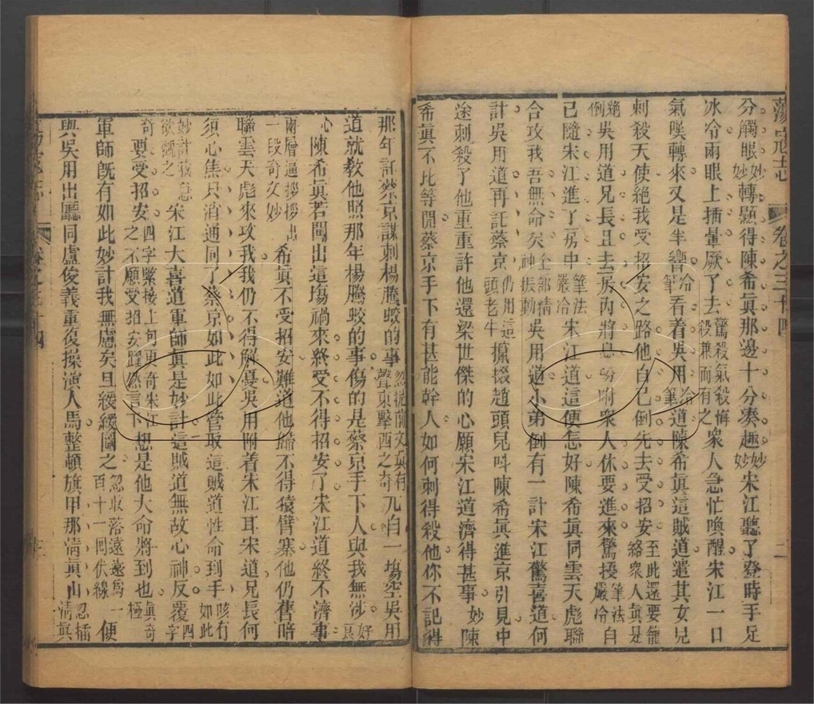 蕩寇志 卷之三十四 二
分觸眼妙轉顯得陳希真那邊十分湊趣妙妙宋江聽了登時手足
冰冷兩眼上插暈厥了去驚殺氣殺悔殺兼而有之衆人急忙喚醒宋江一口
氣嘆轉來又是半響冷筆看着吳用冷筆道陳希真這賊道遣其女兒
刺殺天使絕我受招安之路他自己倒先去受招安至此還要籠絡衆人真是
絕倒吳用道兄長且去房內將息吩咐衆人休要進來驚擾筆法嚴冷自
己隨宋江進了房中筆法嚴冷宋江道這便怎好陳希真同雲天彪聯
合攻我吾無命矣全部情神振動吳用道小弟倒有一計宋江驚喜道何
計吳用道再託蔡京仍用這頭老牛攛掇趙頭兒呌陳希真進京引見中
途刺殺了他重重許他還梁世傑的心願宋江道濟得甚事妙陳
希真不比等閒蔡京手下有甚能幹人如何刺得殺他你不記得
那年託蔡京謀刺楊騰蛟的事忽提前文真有聲東擊西之奇兀自一塲空吳用
道就教他照那年楊騰蛟的事傷的是蔡京手下人與我無涉好良
心陳希真若闖出這塲禍來終受不得招安了宋江道終不濟事
兩層逼拶拶出一段奇文妙希真不受招安難道他縮不得猿臂寨他仍舊暗
聯雲天彪來攻我我仍不得解憂吳用附着宋江耳朱道兄長何
須心焦只消通同了蔡京如此如此管取這賊道性命到手該有如此
妙計我急欲觀之宋江大喜道軍師真是妙計這賊道無故心神反覆四字
奇要受招安四字緊接上何更奇宋江之不願受招安躍然言下想是他大命將到也真奇極
軍師旣有如此妙計我無慮矣且緩緩圖之忽收落遠遠爲一百十一回伏線便
與吳用出廳同盧俊義重復操演人馬整頓旗甲那清真山忽插清真